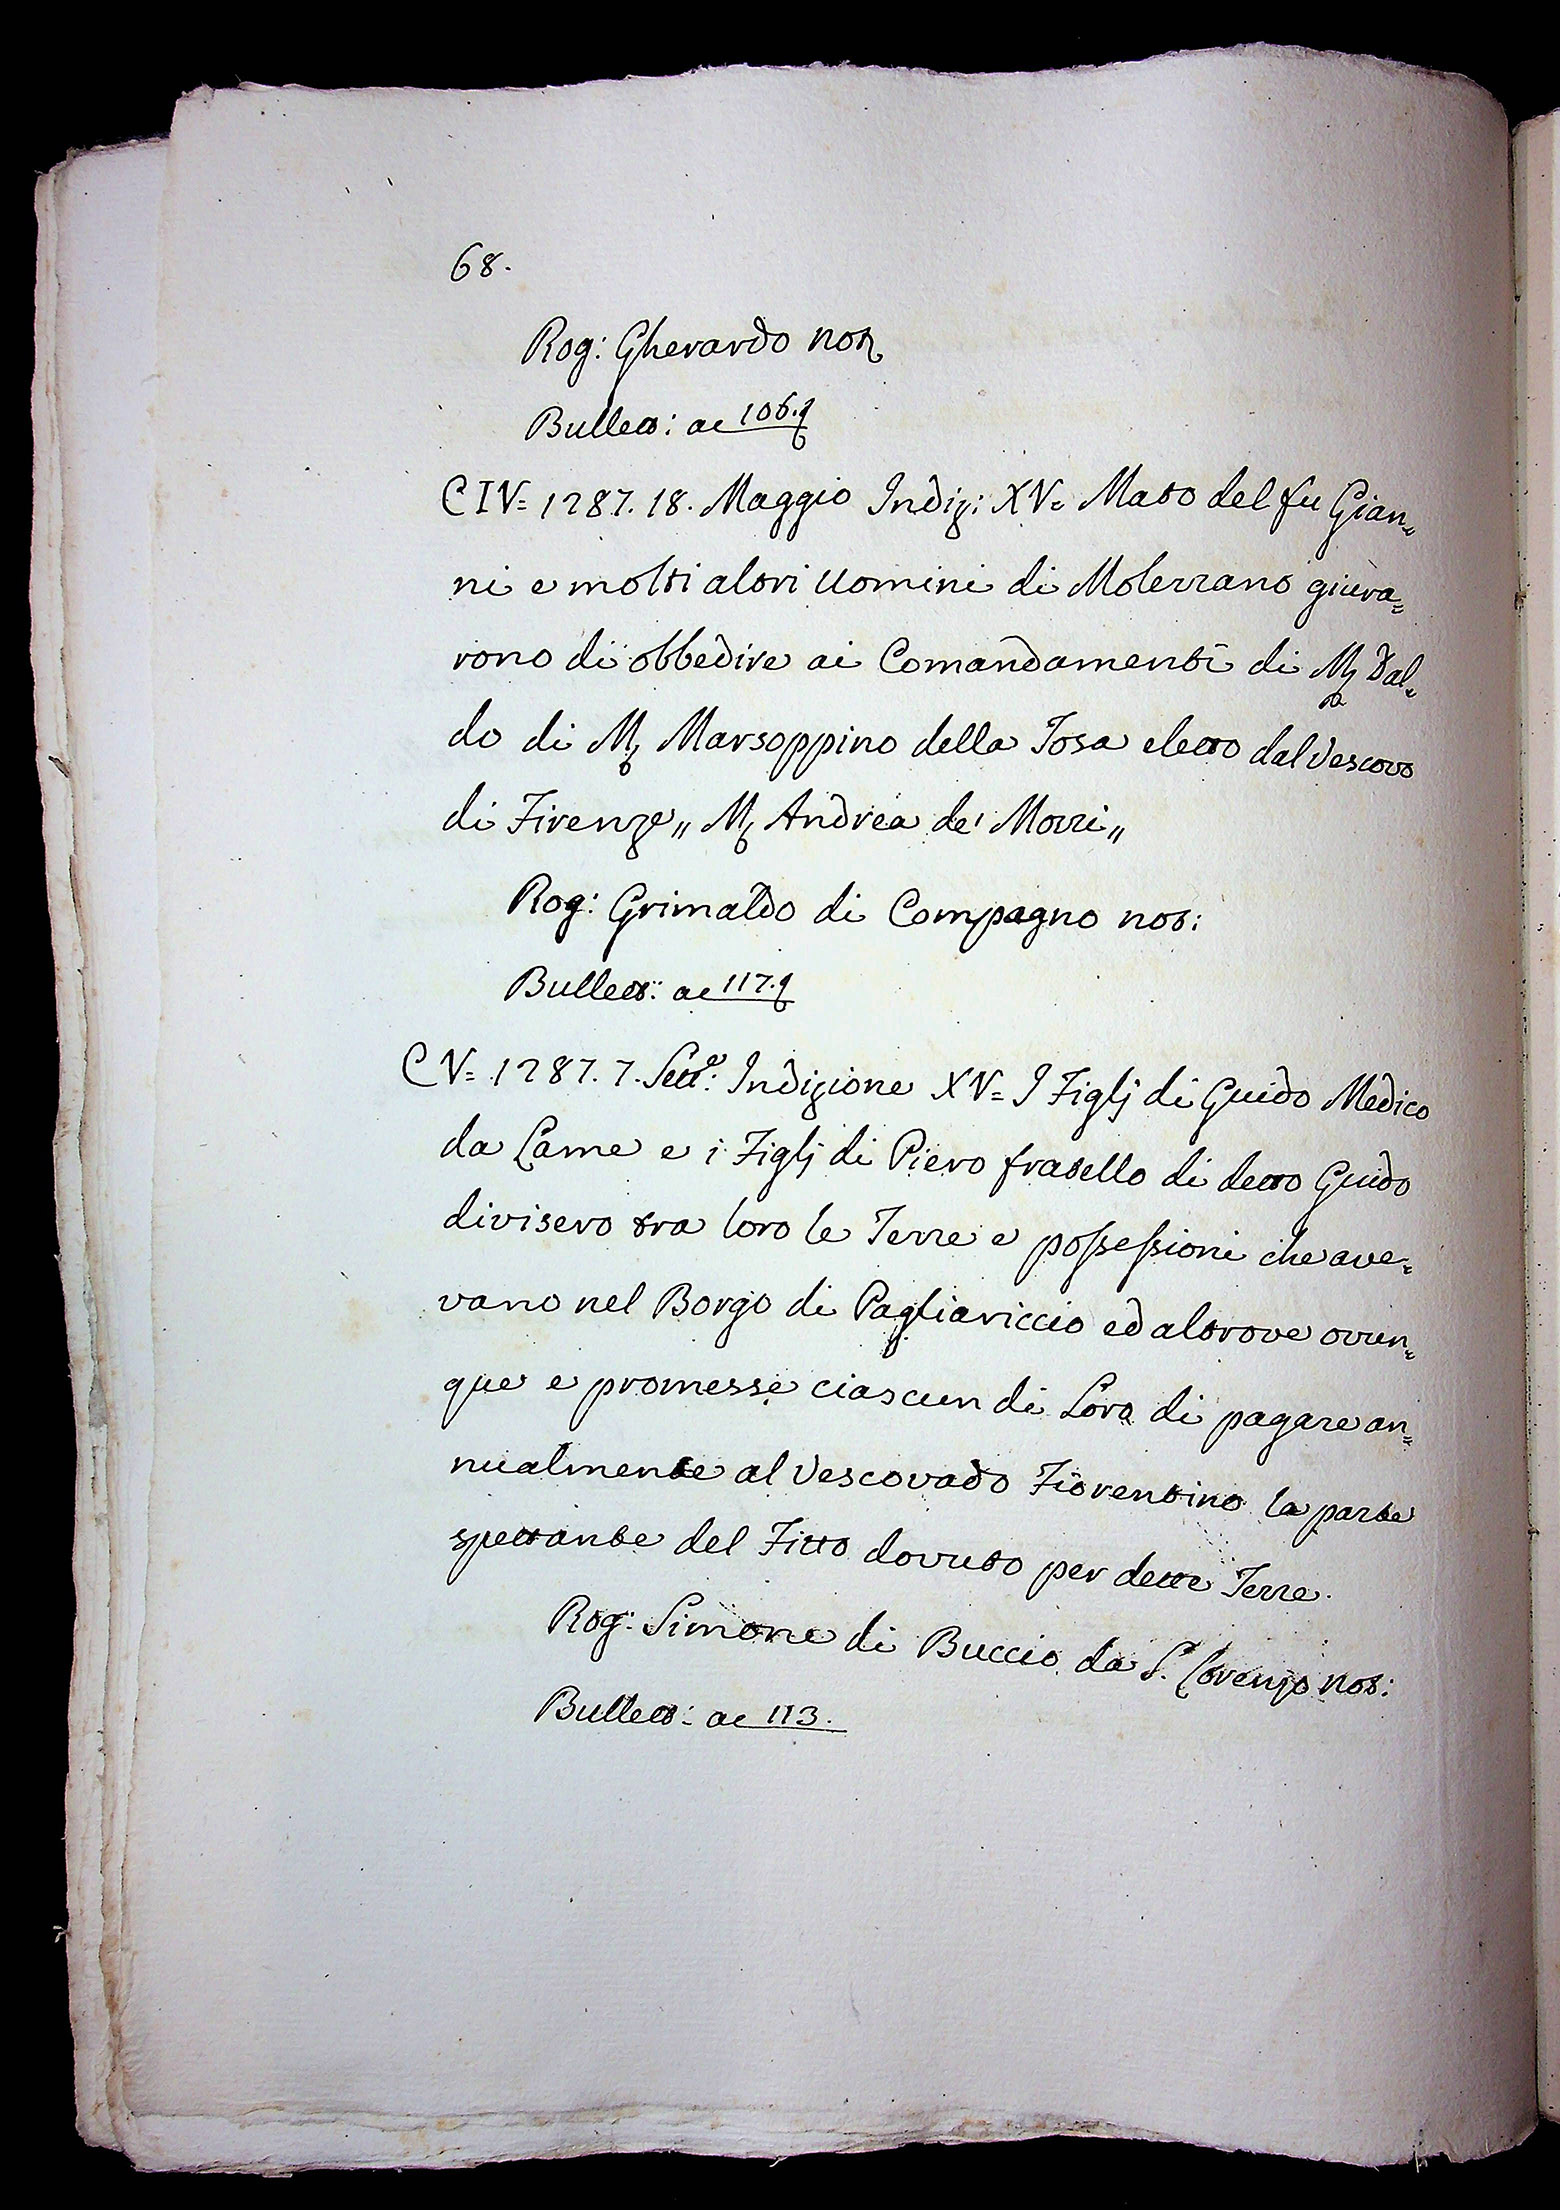 68.
Rog: Gherardo not
Bullett: a c 106.
CIV= 1287. 18. Maggio Indiz: XV= Mato del fu Gian=
ni e molti altri Uomini di Molezzano giura=
rono di obbedire ai Comandamenti di M Dal=
do di M Marsoppino della Tosa eletto dal Vescovo
di Firenze „ M Andrea de' Mozzi „
Rog: Grimaldo di Compagno not:
Bullett: a c 117.
CV= 1287. 7. Sett.e: Indizione XV= I Figlj di Guido Medico
da Came e i Figlj di Piero fratello di detto Guido
divisero tra loro le Terre e possessioni che ave=
vano nel Borgo di Pagliariccio ed altrove ovun=
que e promesse ciascun di Loro di pagare an=
nualmente al Vescovado Fiorentino la parte
spettante del Fitto dovuto per dette Terre.
Rog: Simone di Buccio da S. Lorenzo not:
Bullett: a c 113.